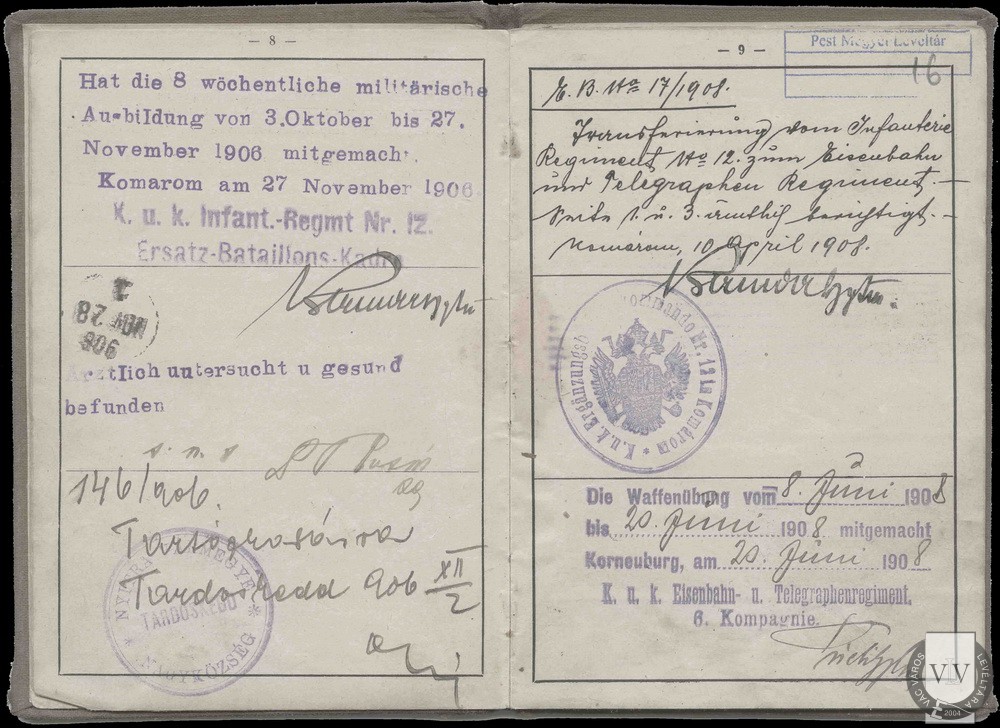 — 8 —
Hat die 8 wöchentliche militärische
Ausbildung von 3.Oktober bis 27.
November 1906 mitgemacht.
Komarom am 27 November 1906
K. u. k. Infant.-Regmt Nr. 12.
Ersatz-Bataillons-Kadre
906
Ärztlich untersucht u gesund
befunden
146/906.
Tardoskedd 906 XII/2
TARDOSKEDD
NAGYKÖZSÉG
— 9 —
Pest Megyei Levéltár
16
E. B. No 17/1908.
Transferierung vom Infanterie
Regiment No 12. zum Eisenbahn
und Telegraphen Regiment. —
Seite 1. u. 3. ämtlich berichtigt. —
Komárom, 10 April 1908.
K.u.k. Ergänzungsbezirkskommando Nr. 12 in Komárom
Die Waffenübung vom 8. Juni 1908
bis 20. Juni 1908 mitgemacht
Korneuburg, am 20. Juni 1908
K. u. k. Eisenbahn- u. Telegraphenregiment.
6. Kompagnie.
VÁC VÁROS LEVÉLTÁRA
2004